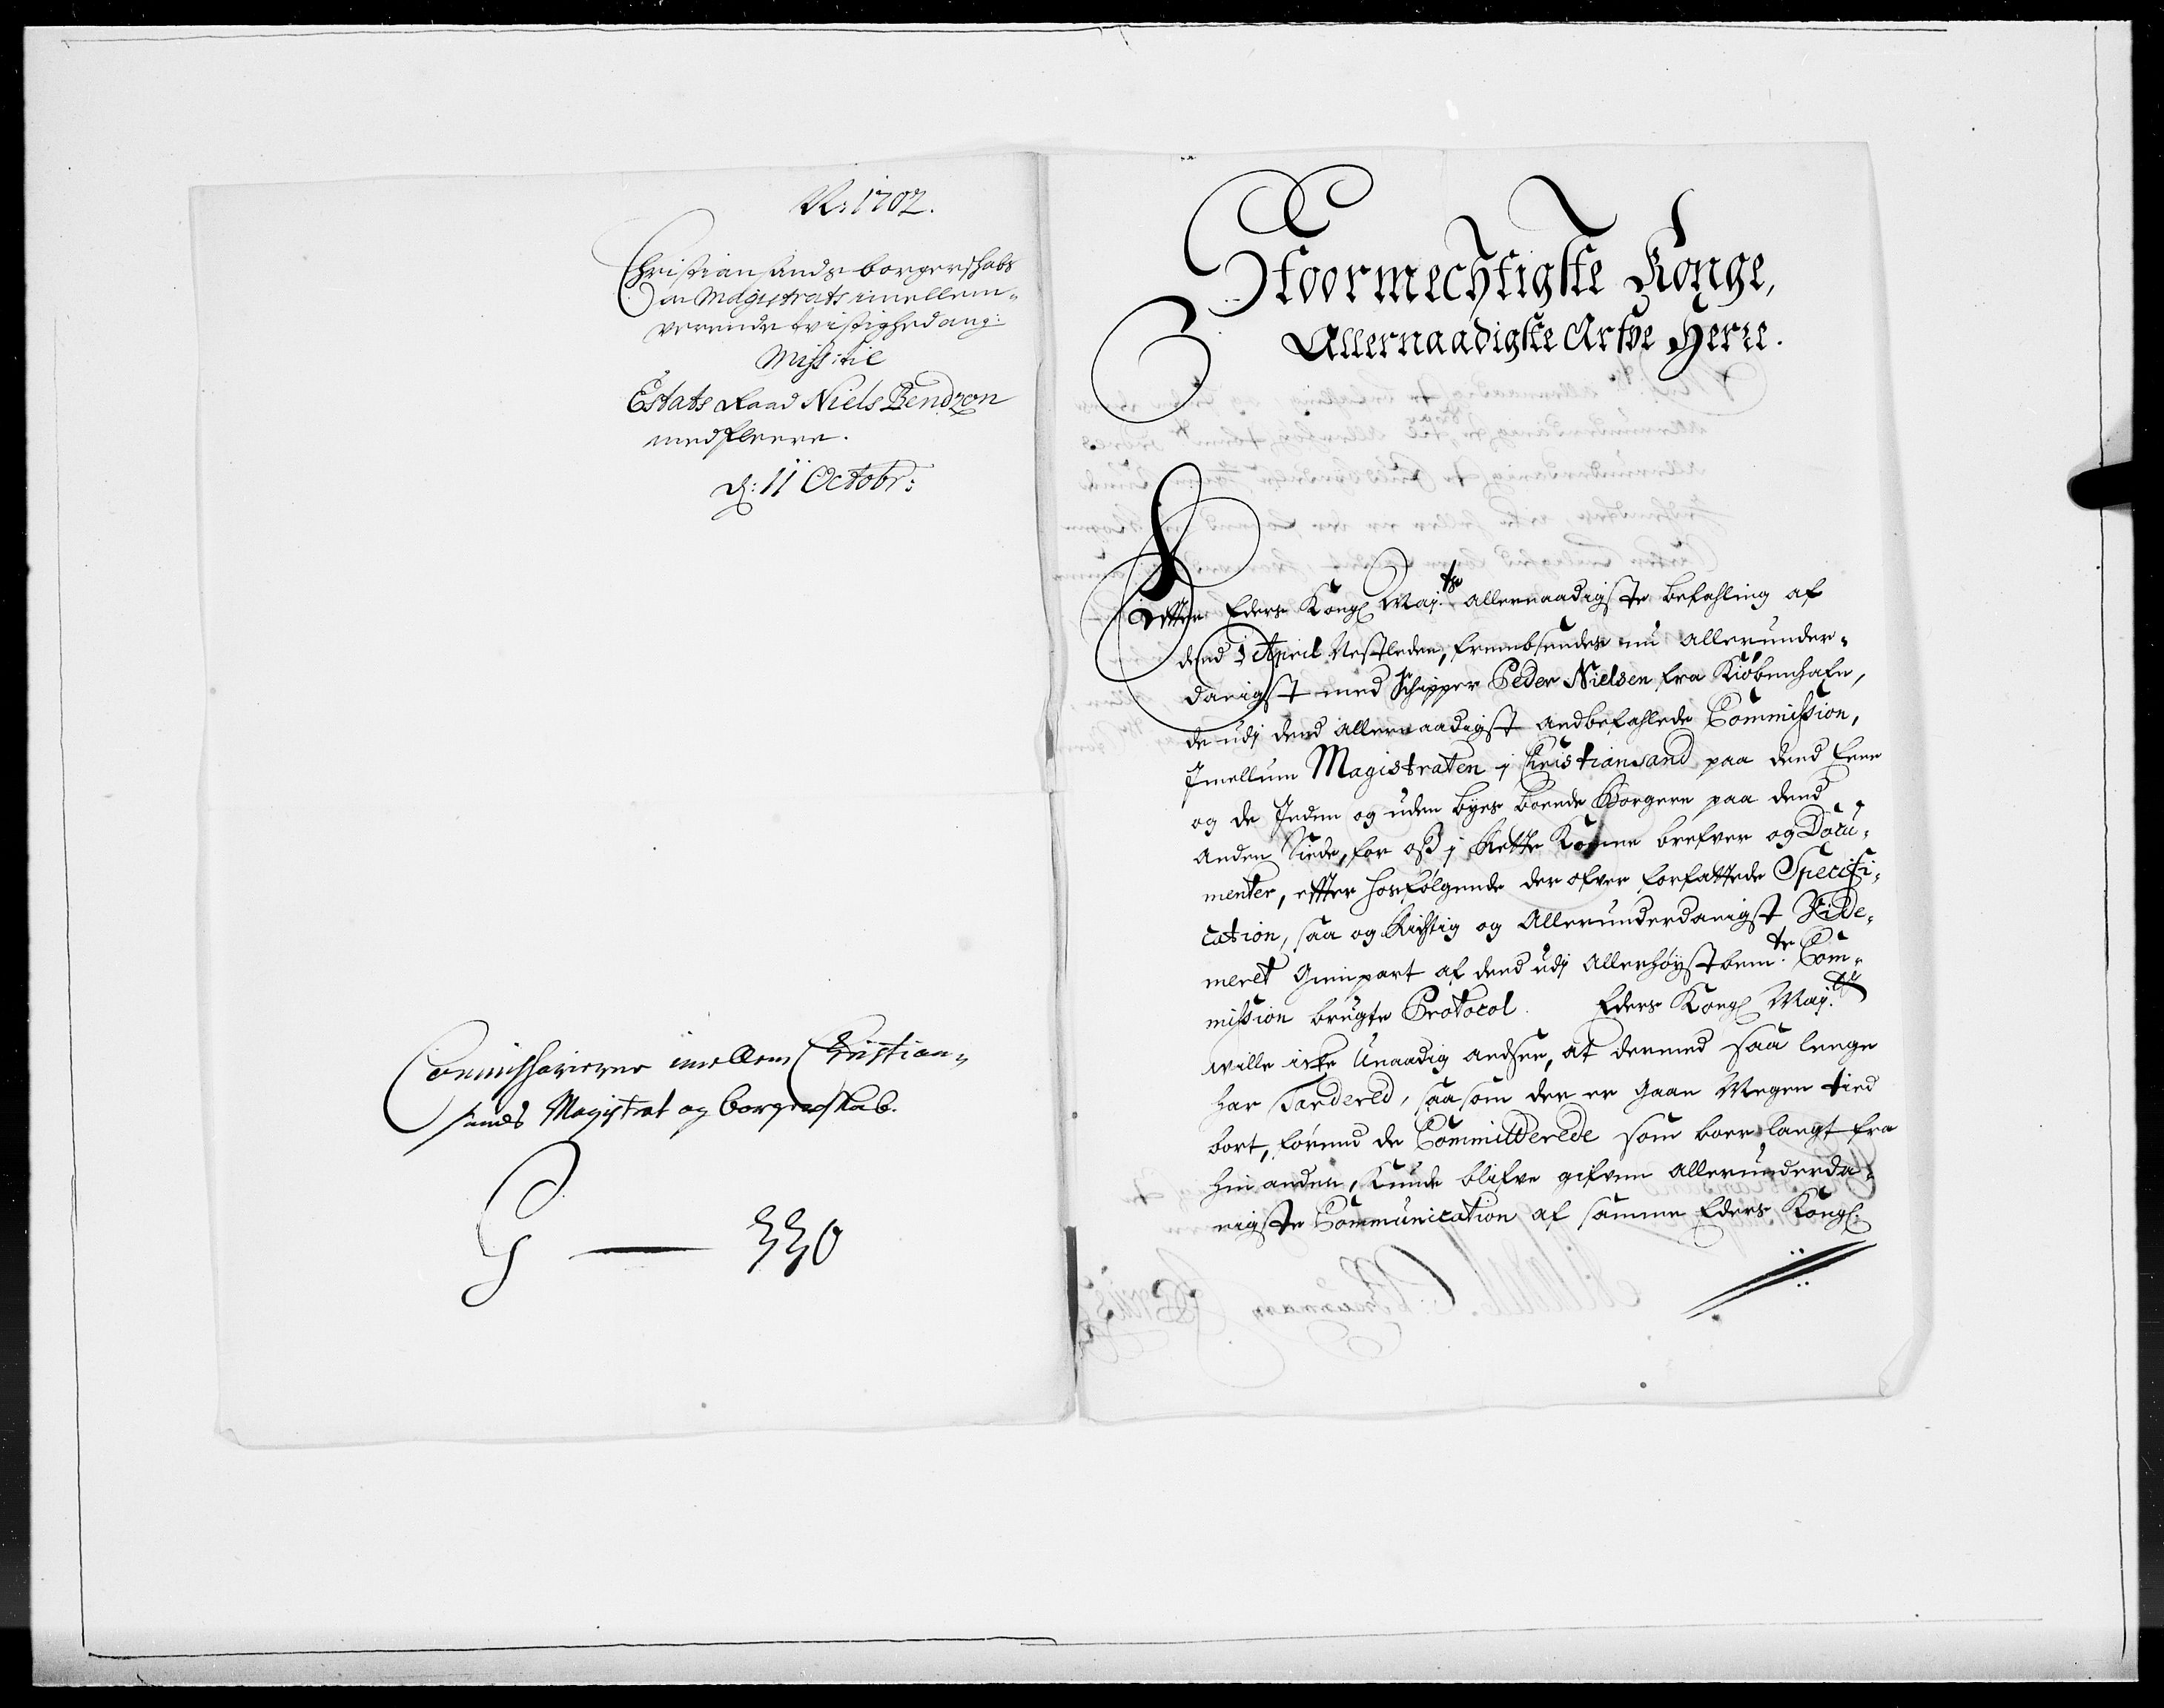 Ao: 1702.
Christiansands borgerskabs
oc Magistrats imellem-
verende tvistighed ang:
Miss: til
Estats Raad Niels Bendzon
med fleere.
d: 11 Octobr:
Commissarierne imellem Christian-
sands Magistrat og borgerskab.
G — 330
Stoormechtigste Konge,
Allernaadigste Arfve Herre.
Efter Eders Kongl Maj:ts allernaadigste befahling af
dend 1 April Nestleden, frembsendes nu allerunder-
danigst med Schipper Peder Nielsen fra Kiøbenhafn,
de udj dend allernaadigst andbefahlede Commission,
Imellum Magistraten j Christiansand paa dend Eene
og de Inden og uden byes boende Borgere paa dend
Anden Siede, for oß j Rette Komne brefver og Docu-
menter, efter hosfølgende der ofver forfattede Specifi-
cation, saa og Rigtig og Allerunderdanigst Vide-
meret Gienpart af dend udj Allerhøystbem:te Com-
mission brugte Protocol. Eders Kongl May:tt
wille icke Unaadig andsee, at dermed saa lenge
har Tardered, saasom der er gaan Megen tied
bort, førend de Committerede som boer langt fra
hin anden, Kunde blifve gifven allerunderda-
nigste Communication af samme Eders Kongl: